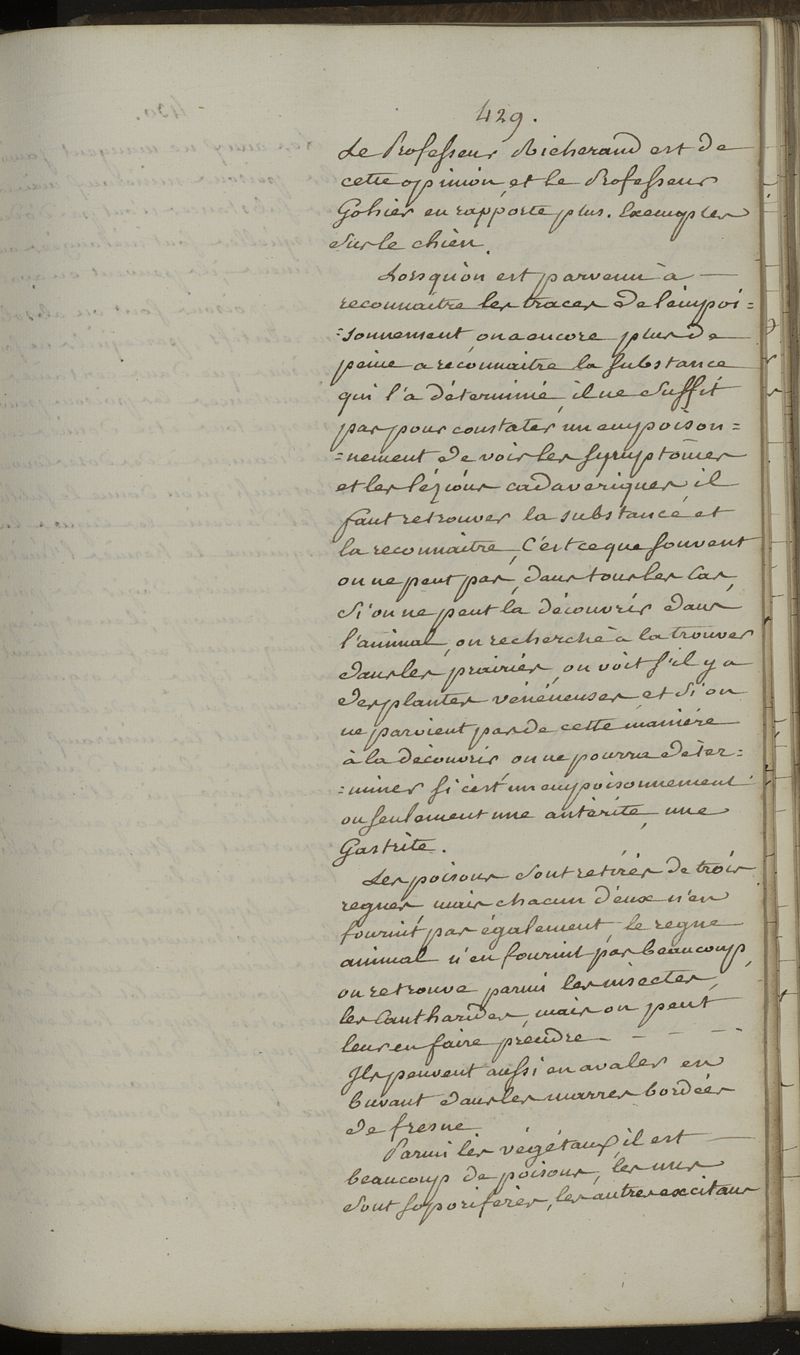 429.
Le Professeur Richerand est de
cette opinion, et le Professeur
Gohier en rapporte plus. Exemples
sur le chien.
Lorsqu'on est parvenu à —
reconnaitre les traces de l'empoi=
=sonnement on a encore plus de
peine a reconnaitre la substance
qui l'a déterminé, il ne suffit
pas pour constater un empoison=
=nement de voir les symptomes
et les lézions cadaveriques, il
faut retrouver la substance et
la reconnaitre, C'est ce que souvent
on ne peut pas, dans tous les Cas,
Si on ne peut la découvrir dans
l'animal, on recherche à la trouver
dans les prairies, on voit s'il y a
des plantes vénéneuses, et Si on
ne parvient pas de cette manière
à la découvrir on ne pourra déter=
=miner si c'est un empoisonnement
ou seulement une antérite, une
Gastrite.
Les poisons sont retirés de trois
regnes mais chacun d'eux n'en
fournit pas également, le regne
animal n'en fournit pas beaucoup,
on retrouve parmi les insectes,
les Cantharides, mais on peut
leur en faire prendre — — — —
Ils peuvent aussi en avaler en
buvant dans les marres bordées
de fresne
Parmi les végétaux, il est —
beaucoup de poisons, les uns
sont soporiferes, les autres excitans